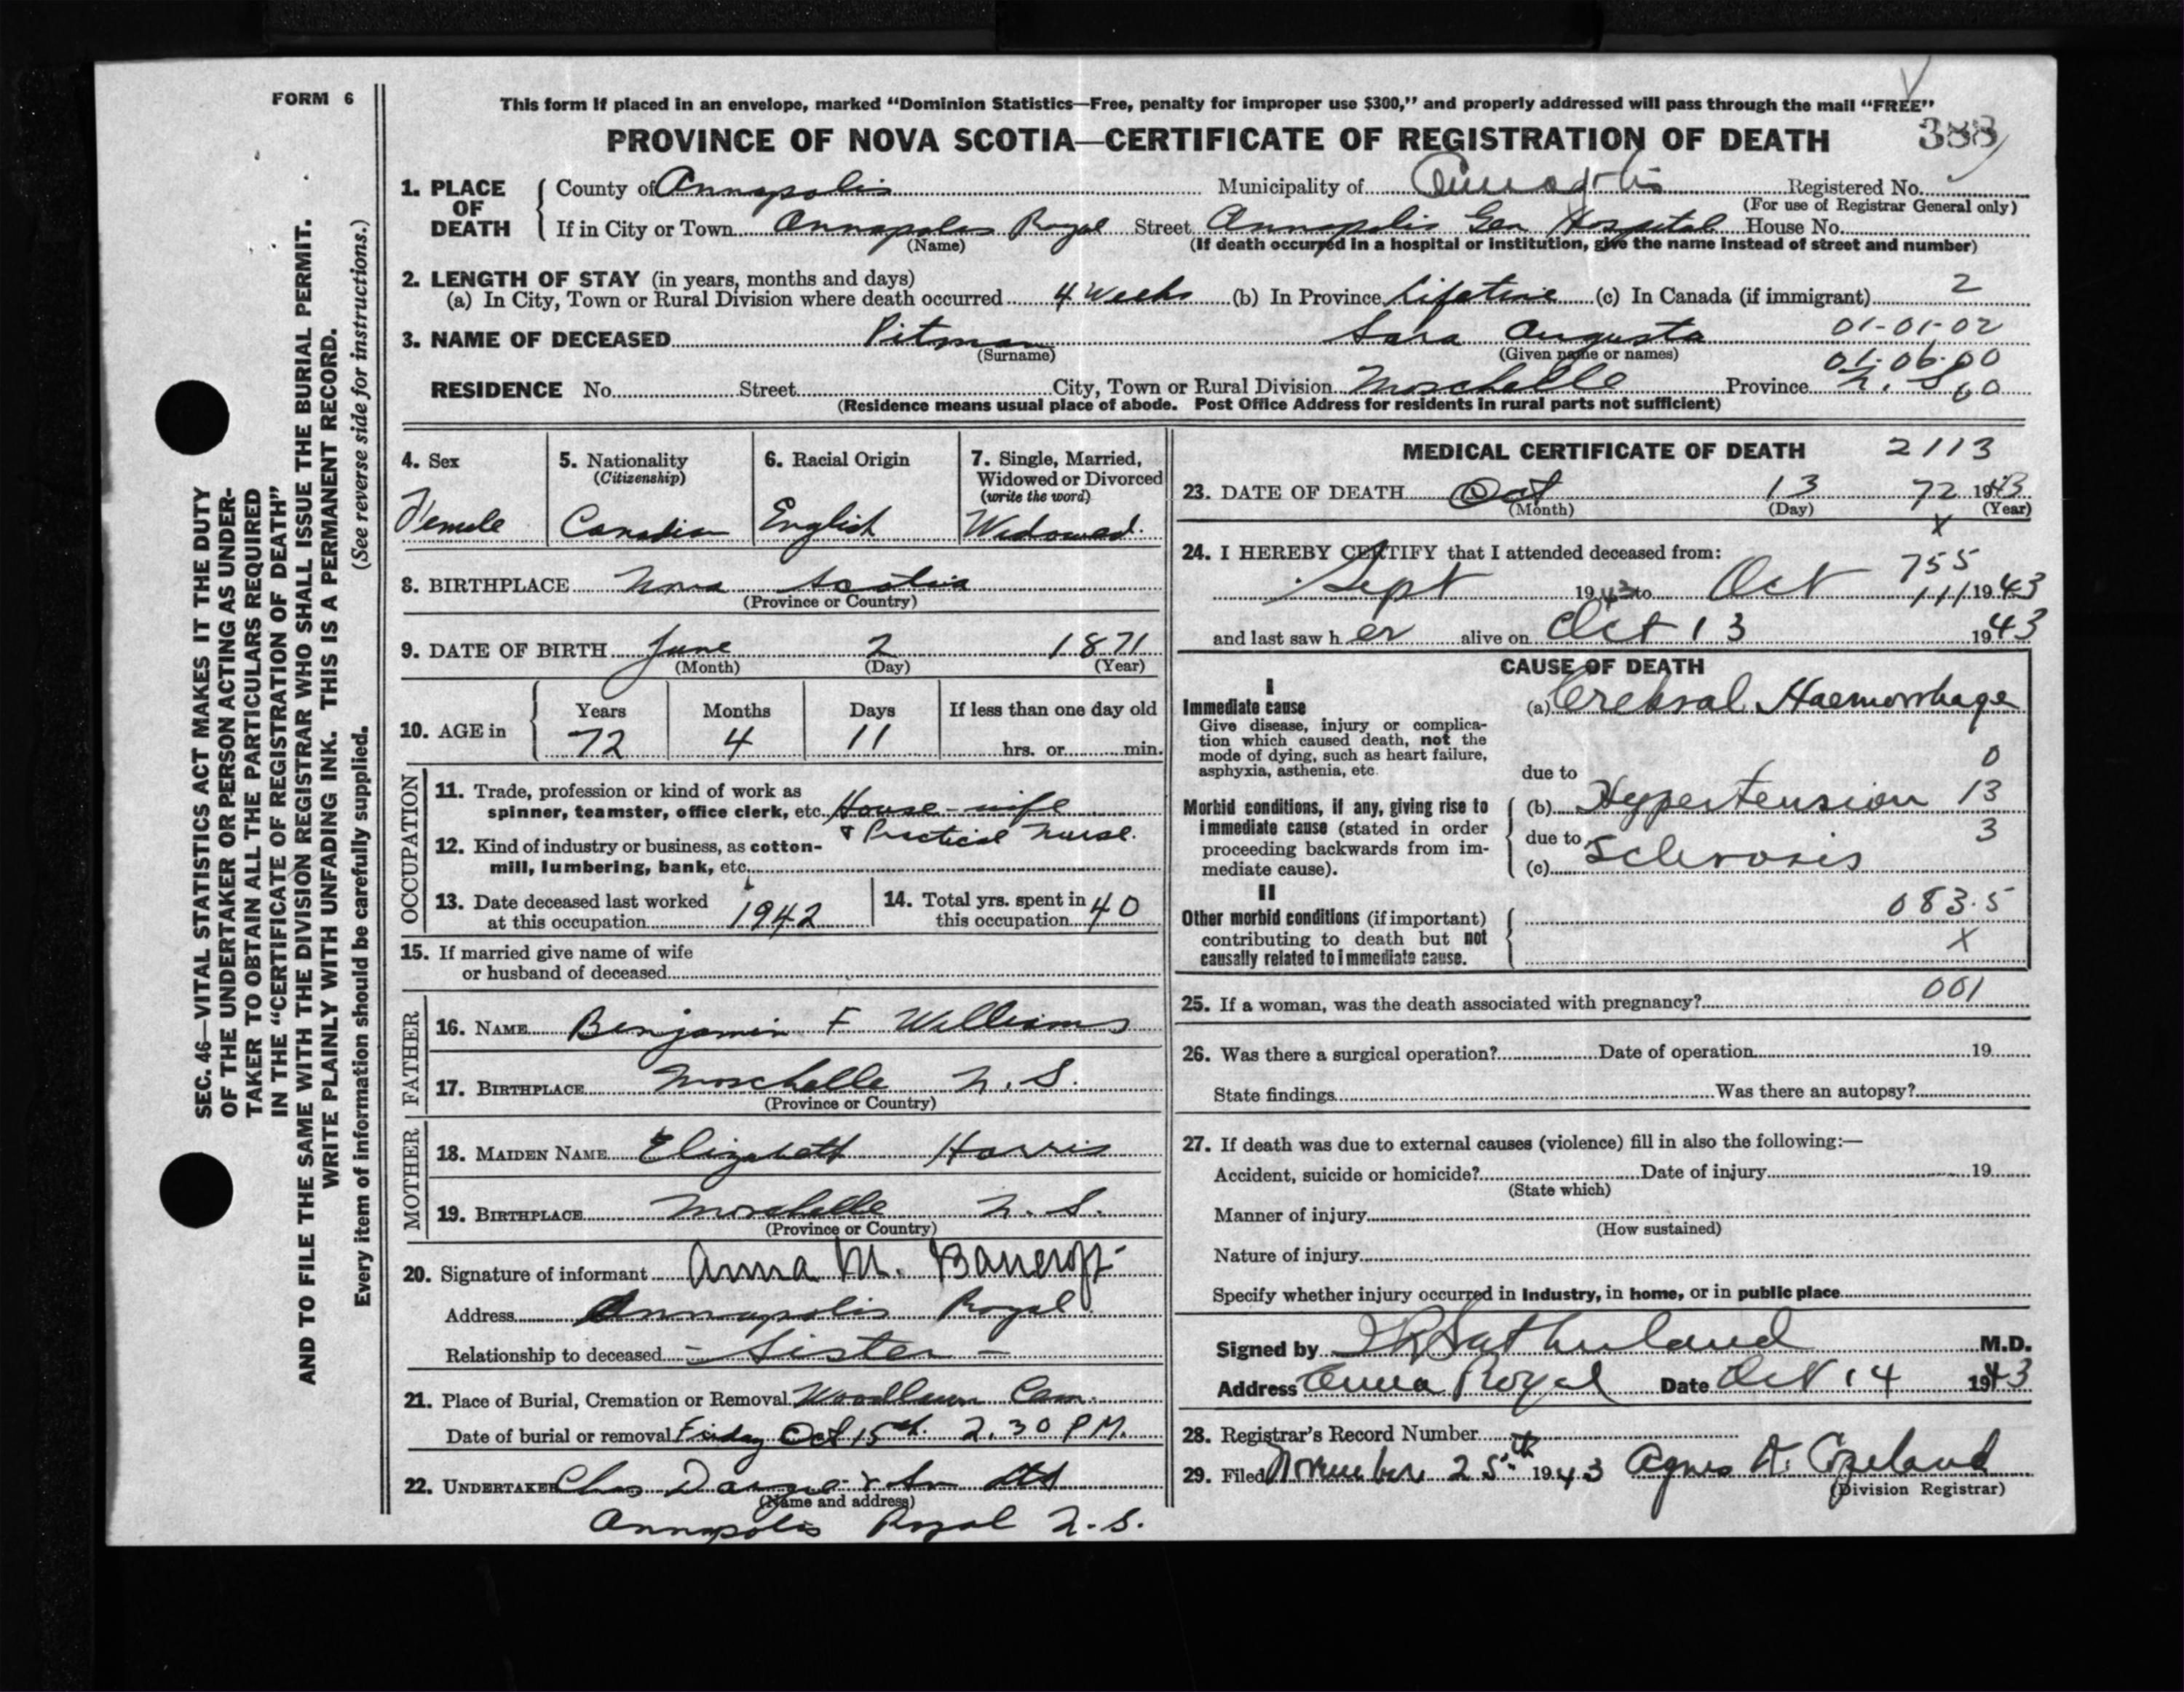 FORM 6
This form if placed in an envelope, marked “Dominion Statistics—Free, penalty for improper use $300,” and properly addressed will pass through the mail “FREE”
PROVINCE OF NOVA SCOTIA—CERTIFICATE OF REGISTRATION OF DEATH 388
1. PLACE OF DEATH
County of Annapolis Municipality of Annapolis Registered No.
(For use of Registrar General only)
If in City or Town Annapolis Royal Street Annapolis Gen Hospital House No.
(Name) (If death occurred in a hospital or institution, give the name instead of street and number)
2. LENGTH OF STAY (in years, months and days)
(a) In City, Town or Rural Division where death occurred 4 Weeks (b) In Province Lifetime (c) In Canada (if immigrant) 2
01-01-02
3. NAME OF DECEASED Pitman Sara Augusta
(Surname) (Given name or names)
01-06-00
RESIDENCE No. Street City, Town or Rural Division Moschelle Province N. S. 60
(Residence means usual place of abode. Post Office Address for residents in rural parts not sufficient)
4. Sex
Female
5. Nationality
(Citizenship)
Canadian
6. Racial Origin
English
7. Single, Married,
Widowed or Divorced
(write the word)
Widowed.
8. BIRTHPLACE Nova Scotia
(Province or Country)
9. DATE OF BIRTH June 2 1871
(Month) (Day) (Year)
10. AGE in
Years Months Days If less than one day old
72 4 11 hrs. or min.
OCCUPATION
11. Trade, profession or kind of work as
spinner, teamster, office clerk, etc. House-wife
& Practical Nurse.
12. Kind of industry or business, as cotton-
mill, lumbering, bank, etc.
13. Date deceased last worked
at this occupation 1942
14. Total yrs. spent in
this occupation 40
15. If married give name of wife
or husband of deceased
FATHER
16. NAME Benjamin F Williams
17. BIRTHPLACE Moschelle N. S.
(Province or Country)
MOTHER
18. MAIDEN NAME Elizabeth Harris
19. BIRTHPLACE Moschelle N. S.
(Province or Country)
20. Signature of informant Anna M. Bancroft
Address Annapolis Royal
Relationship to deceased - Sister -
21. Place of Burial, Cremation or Removal Woodlawn Cem.
Date of burial or removal Friday Oct 15th. 2.30 PM.
22. UNDERTAKER Chas & Son Ltd
(Name and address)
Annapolis Royal N. S.
MEDICAL CERTIFICATE OF DEATH 2113
23. DATE OF DEATH Oct 13 72 1943
(Month) (Day) (Year)
X
24. I HEREBY CERTIFY that I attended deceased from:
755
Sept 1943 to Oct 111 1943
and last saw her alive on Oct 13 1943
CAUSE OF DEATH
I
Immediate cause
Give disease, injury or complica-
tion which caused death, not the
mode of dying, such as heart failure,
asphyxia, asthenia, etc.
(a) Cerebral Haemorrhage
0
due to
Morbid conditions, if any, giving rise to
immediate cause (stated in order
proceeding backwards from im-
mediate cause).
(b) Hypertension 13
due to 3
(c) Sclerosis
II
Other morbid conditions (if important)
contributing to death but not
causally related to immediate cause.
083.5
X
25. If a woman, was the death associated with pregnancy? 001
26. Was there a surgical operation? Date of operation 19
State findings Was there an autopsy?
27. If death was due to external causes (violence) fill in also the following:—
Accident, suicide or homicide? Date of injury 19
(State which)
Manner of injury
(How sustained)
Nature of injury
Specify whether injury occurred in Industry, in home, or in public place
Signed by Sutherland M.D.
Address Anna Royal Date Oct 14 1943
28. Registrar's Record Number
29. Filed November 25th 1943 Agnes A. Copeland
(Division Registrar)
SEC. 46—VITAL STATISTICS ACT MAKES IT THE DUTY
OF THE UNDERTAKER OR PERSON ACTING AS UNDER-
TAKER TO OBTAIN ALL THE PARTICULARS REQUIRED
IN THE “CERTIFICATE OF REGISTRATION OF DEATH”
AND TO FILE THE SAME WITH THE DIVISION REGISTRAR WHO SHALL ISSUE THE BURIAL PERMIT.
WRITE PLAINLY WITH UNFADING INK. THIS IS A PERMANENT RECORD.
Every item of information should be carefully supplied. (See reverse side for instructions.)